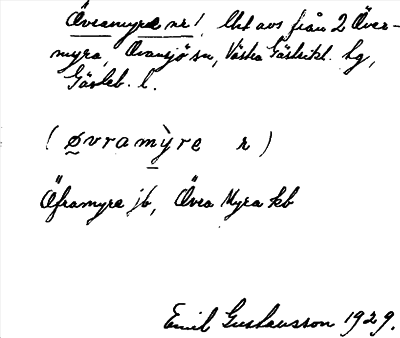 Övramyra nr 1, Uti avs från 2 Över-
myra, Ovansjö sn, Västra Gästrikl. hg,
Gävleb. l.
( øvramỳre r )
Öframyra jb, Övra Myra kb
Emil Gustavsson 1929.